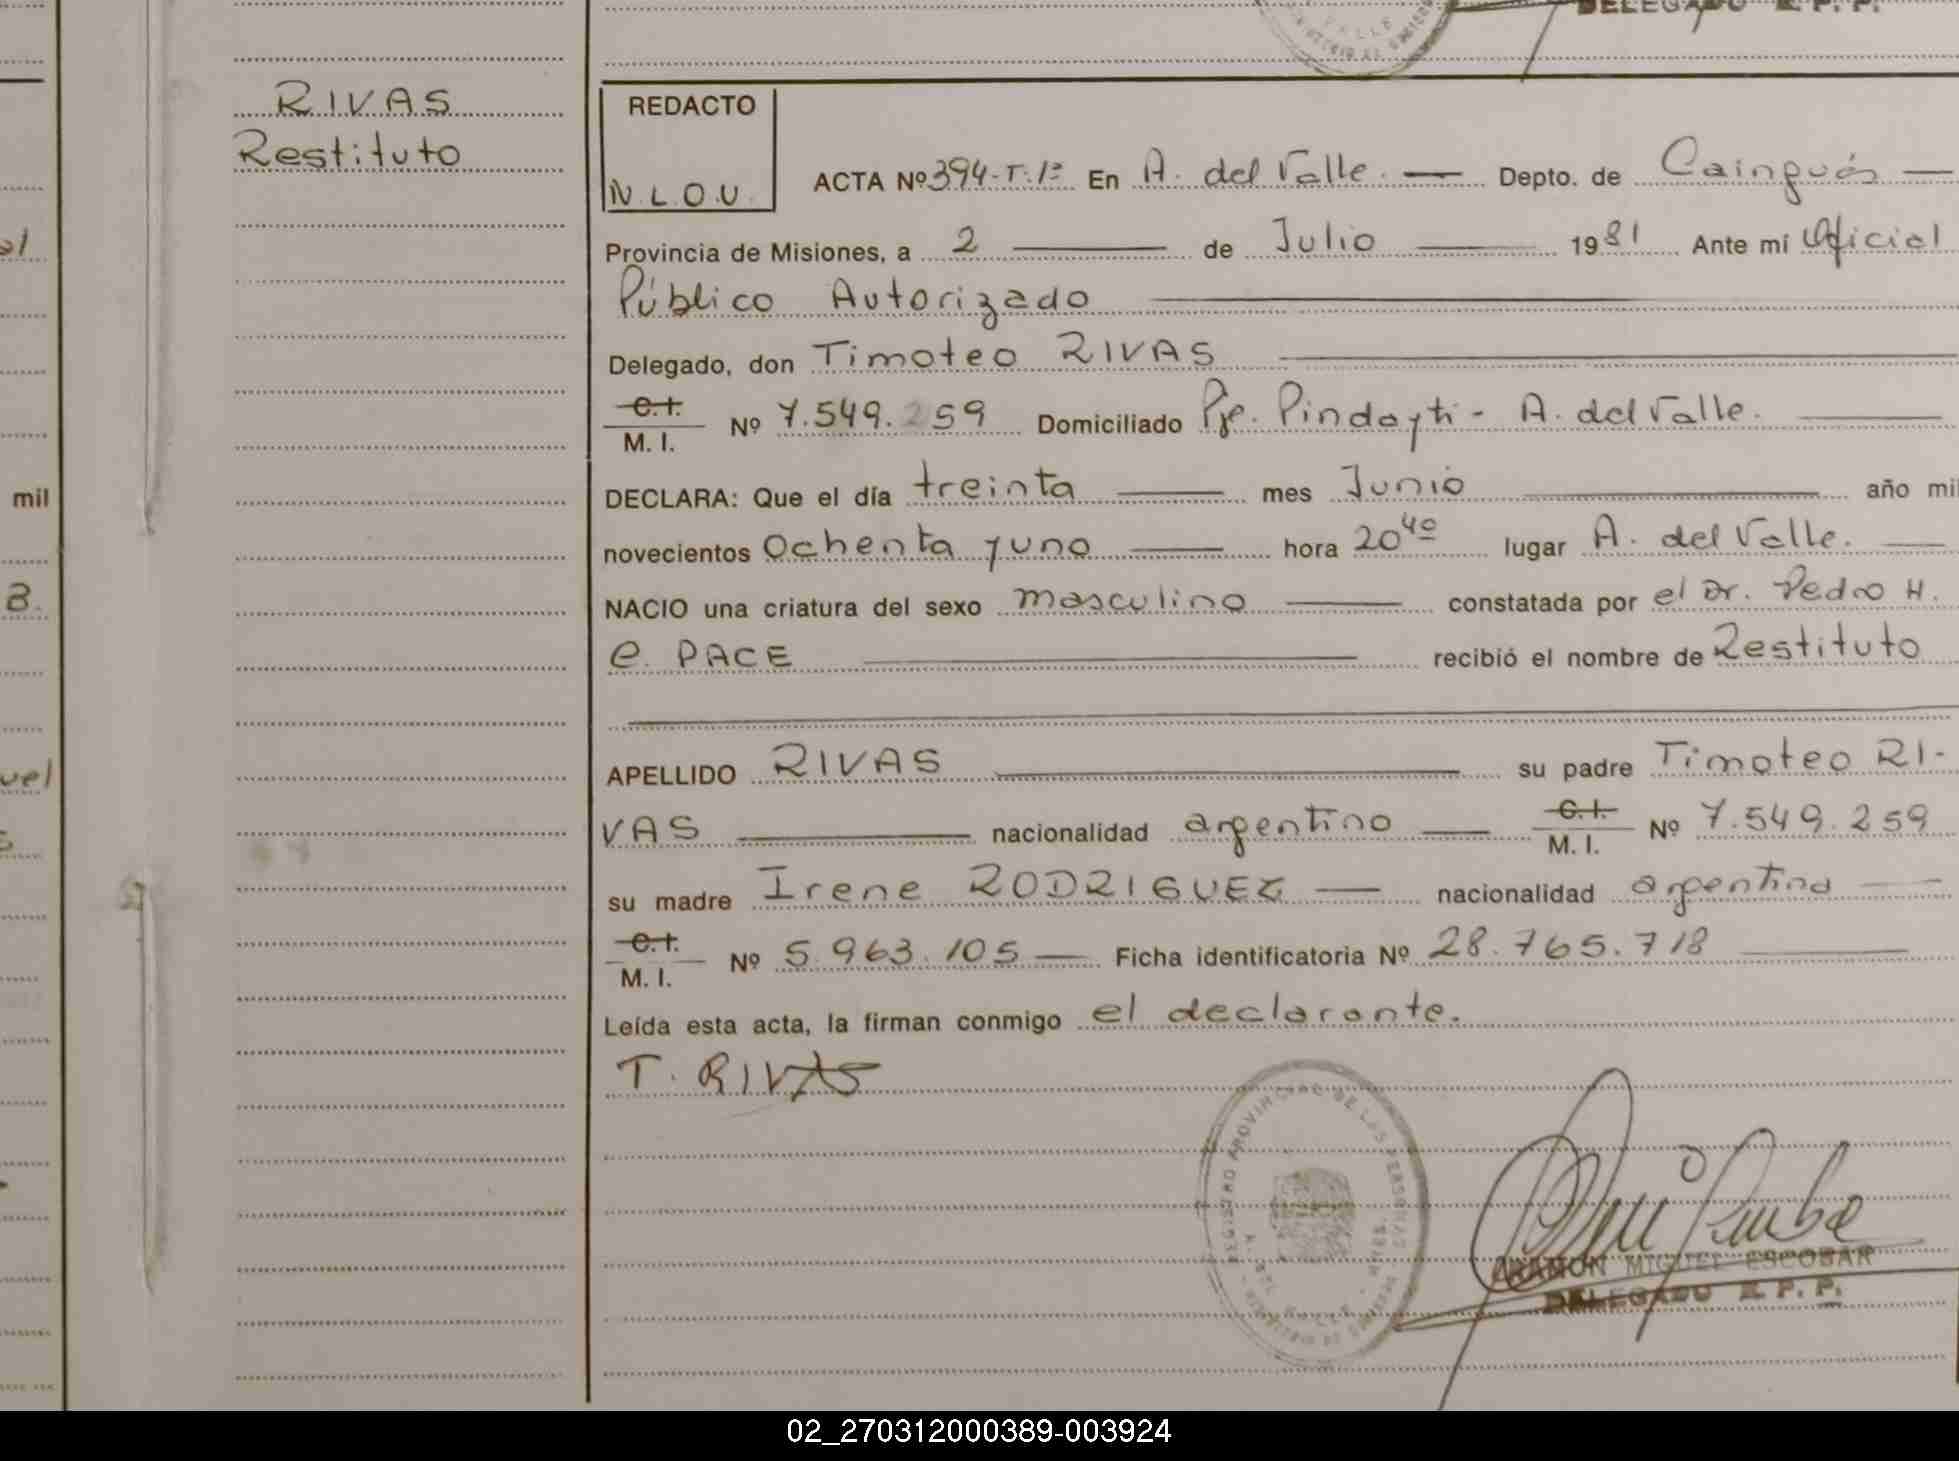 DELEGADO R. P. P.
RIVAS
Restituto
REDACTO
N.L.O.U.
ACTA Nº 394-T.1º En A. del Valle. Depto. de Cainguás
Provincia de Misiones, a 2 de Julio 1981 Ante mí Oficial
Público Autorizado
Delegado, don Timoteo RIVAS
C.I.
M. I. Nº 7.549.259 Domiciliado Pje. Pindayti - A. del Valle.
DECLARA: Que el día treinta mes Junio año mil
novecientos Ochenta y uno hora 20⁴⁰ lugar A. del Valle.
NACIO una criatura del sexo masculino constatada por el Dr. Pedro H.
e. PACE recibió el nombre de Restituto
APELLIDO RIVAS su padre Timoteo RI-
VAS nacionalidad argentino C.I. M. I. Nº 7.549.259
su madre Irene RODRIGUEZ nacionalidad argentina
C.I.
M. I. Nº 5.963.105 Ficha identificatoria Nº 28.765.718
Leída esta acta, la firman conmigo el declarante.
T. RIVAS
REGISTRO PROVINCIAL DE LAS PERSONAS
RAMON MIGUEL ESCOBAR
DELEGADO R. P. P.
al
mil
B.
uel
02_270312000389-003924